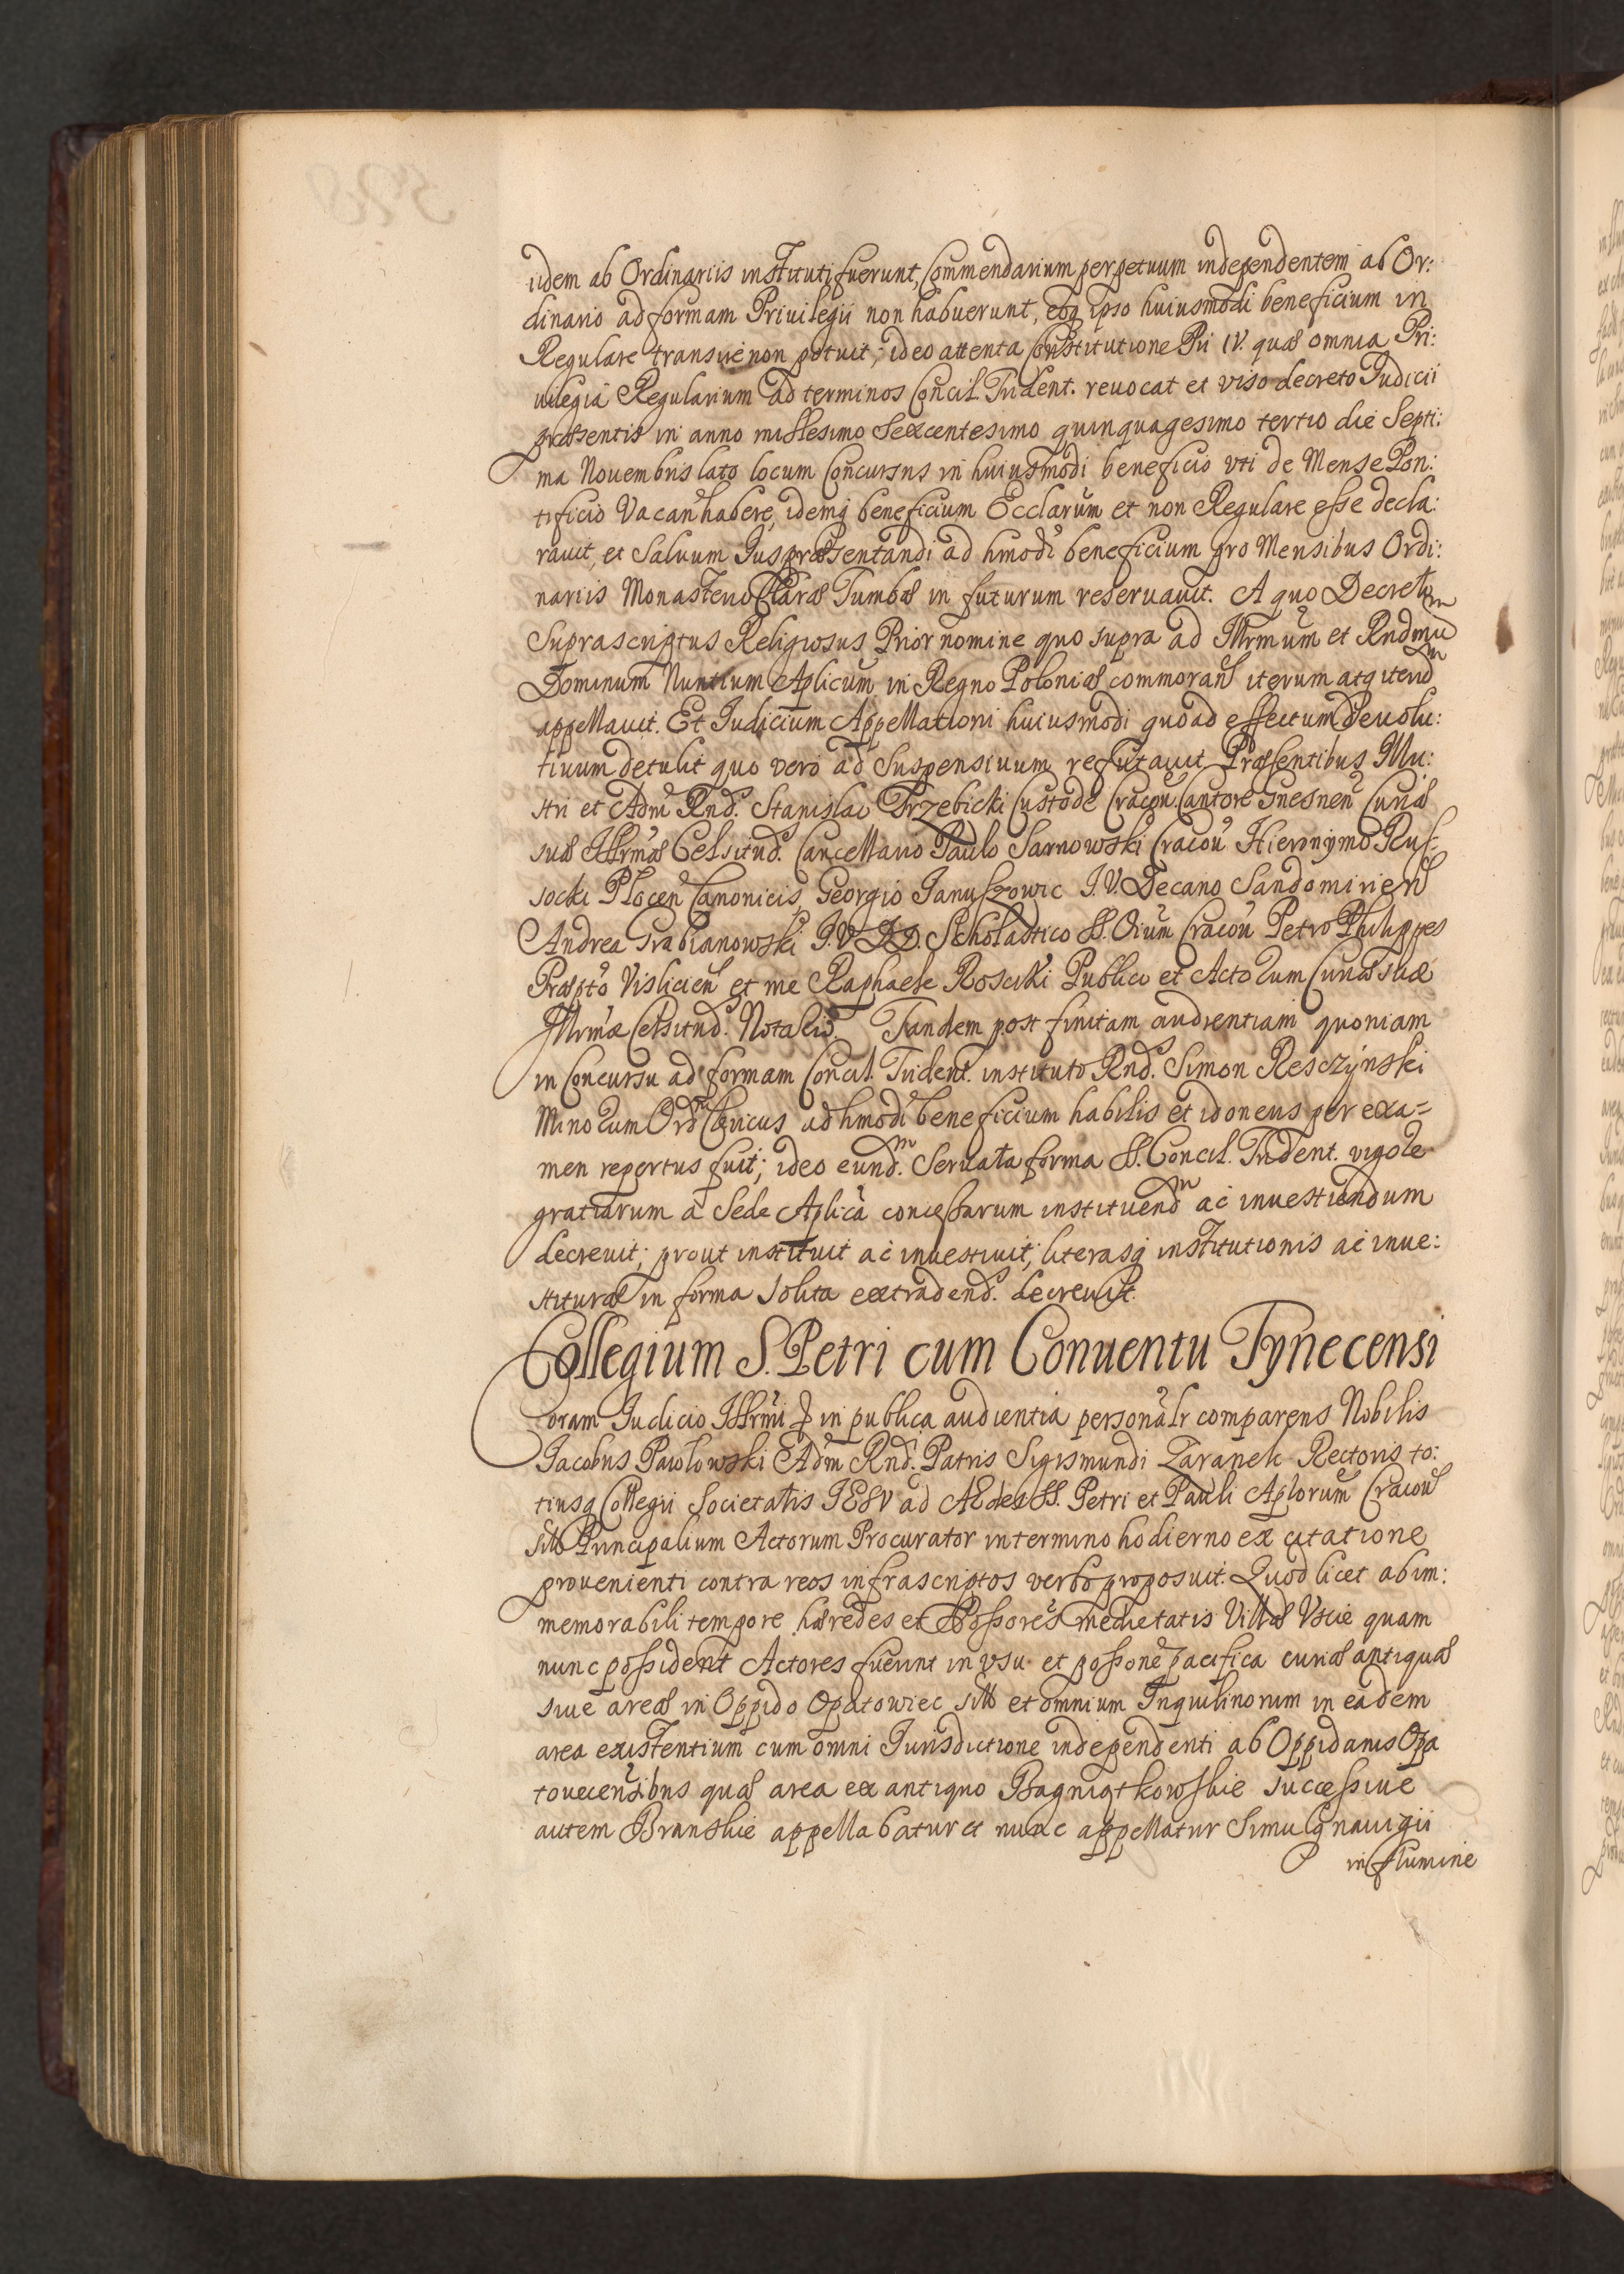 iidem ab Ordinariis instituti fuerunt, Commendarium perpetuum independentem ab Or:
dinario ad formam Priuilegii non habuerunt, eoq ipso huiusmodi beneficium in
Regulare transire non potuit; ideo attenta Constitutione Pii IV. quæ omnia Pri:
uilegia Regularium ad terminos Concil. Trident. reuocat et viso decreto Iudicii
præsentis in anno millesimo Sexcentesimo quinquagesimo tertio die Septi:
ma Nouembris lato locum Concursus in huiusmodi beneficio vti de Mense Pon:
tificio Vacan habere, idemq beneficium Ecclarum et non Regulare esse decla:
rauit, et Saluum Ius præsentandi ad hmodi beneficium pro Mensibus Ordi:
nariis Monasterio Claræ Tumbæ in futurum reseruauit. A quo Decreto
Suprascriptus Religiosus Prior nomine quo supra ad Illrmum et Rndmum
Dominum Nuntium Aplicum in Regno Poloniæ commoran iterum atq iterum
appellauit. Et Iudicium Appellationi huiusmodi quoad effectum Deuolu:
tiuum detulit quo vero ad Suspensiuum refutauit Præsentibus Illu:
stri et Adm Rnd. Stanislao Trzebicki Custode Cracou. Cantore Gnesnen Curiæ
suæ Illrmæ Celsitud. Cancellario Paulo Sarnowski Cracou Hieronymo Rus:
socki Plocen Canonicis, Georgio Ianuszowic I.V. Decano Sandomirien
Andrea Grabianowski I.V.D.D. Scholastico SS. Oium Cracou Petro Philippes
Præpto Vislicien et me Raphaele Rosciki Publico et Actorum Curiæ suæ
Illrmæ Celsitud. Notario. Tandem post finitam audientiam quoniam
in Concursu ad formam Concil. Trident. instituto Rnd. Simon Resczynski
Minorum Ord Clericus ad hmodi beneficium habilis et idoneus per exa=
men repertus fuit; ideo eund.m Seruata forma SS. Concil. Trident. vigore
gratiarum a Sede Aplica concessarum instituendm ac inuestiendum
decreuit; prout instituit ac inuestiuit; literasq institutionis ac inue:
stituræ in forma solita extradend. decreuit.
Collegium S. Petri cum Conuentu Tynecensi
Coram Iudicio Illrmi in publica audientia personalr comparens Nobilis
Iacobus Pawlowski Adm Rnd. Patris Sigismundi Zaranek Rectoris to:
tiusq Collegii Societatis IESV ad AEdes SS. Petri et Pauli Aplorum Cracou
sitto Principalium Actorum Procurator in termino hodierno ex citatione
prouenienti contra reos infrascriptos verbo proposuit. Quod licet ab im:
memorabili tempore hæredes et Possores medietatis Villæ Vscie quam
nunc possident Actores fuerint in vsu et possone pacifica curiæ antiquæ
siue areæ in Oppido Opatowiec sitto et omnium Inquilinorum in eadem
area existentium cum omni Iurisdictione independenti ab Oppidanis Opa
touiecensibus quæ area ex antiquo successiue
autem Branskie appellabatur et nunc appellatur Simulq nauigii
in flumine